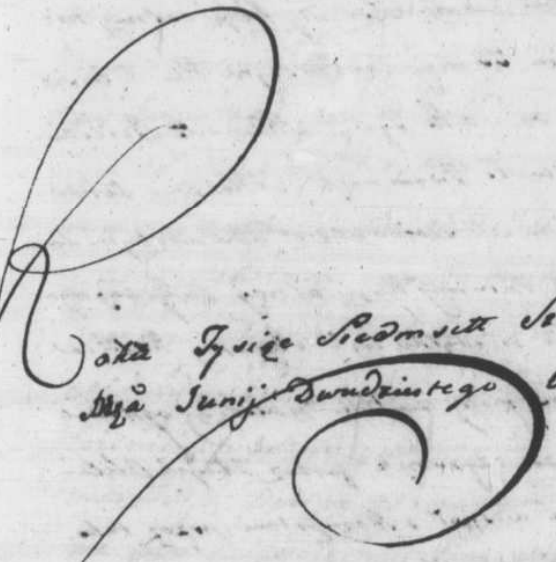 Roku Tysiąc Siedmsett
Mca Junij Dwudziestego